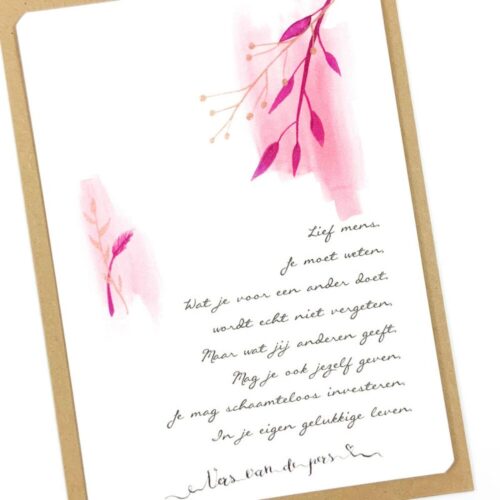 Lief mens,
Je moet weten,
Wat je voor een ander doet,
wordt echt niet vergeten,
Maar wat jij anderen geeft,
Mag je ook jezelf geven,
Je mag schaamteloos investeren,
In je eigen gelukkige leven.
Vers van de pers